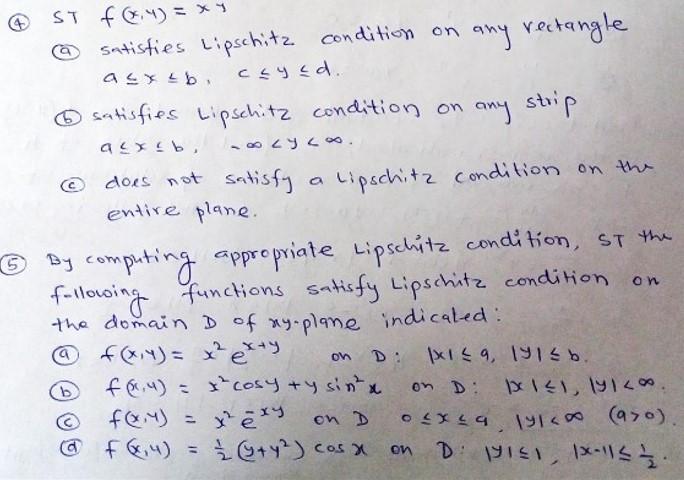 ④ ST f(x,y) = xy
ⓐ satisfies Lipschitz condition on any rectangle
a ≤ x ≤ b, c ≤ y ≤ d.
ⓑ satisfies Lipschitz condition on any strip
a ≤ x ≤ b, -∞ < y < ∞.
ⓒ does not satisfy a Lipschitz condition on the
entire plane.
⑤ By computing appropriate Lipschitz condition, ST the
following functions satisfy Lipschitz condition on
the domain D of xy-plane indicated:
ⓐ f(x,y) = x² e^{x+y} on D: |x| ≤ a, |y| ≤ b.
ⓑ f(x,y) = x² cos y + y sin² x on D: |x| ≤ 1, |y| < ∞.
ⓒ f(x,y) = x² e^{-xy} on D 0 ≤ x ≤ a, |y| < ∞ (a>0).
ⓓ f(x,y) = ½ (y+y²) cos x on D: |y| ≤ 1, |x-1| ≤ ½.